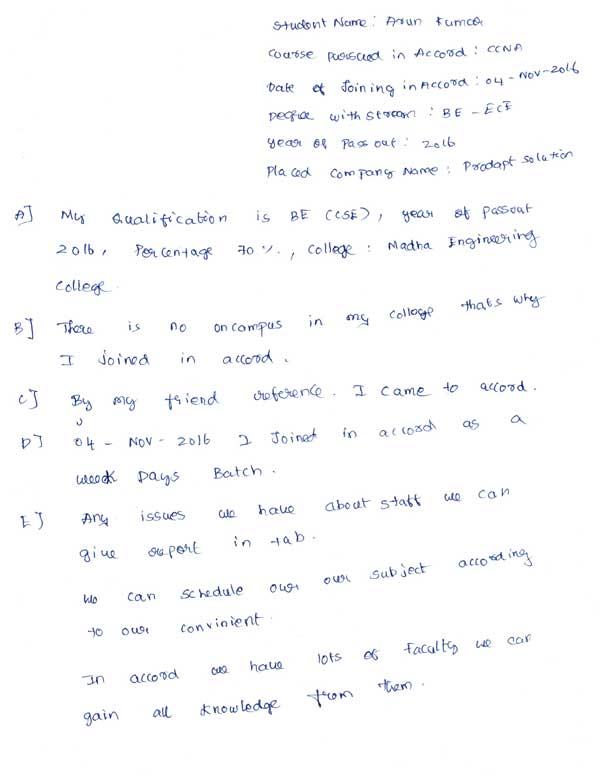 Student Name : Arun Kumar
Course pursued in Accord : CCNA
Date of Joining in Accord : 04 - NOV - 2016
Degree with Stream : BE - ECE
year of Pass out : 2016
Placed Company Name : Prodapt solution
A] My Qualification is BE (CSE), year of Passout
2016, Percentage 70 %., College : Madha Engineering
College.
B] There is no oncampus in my college thats why
I Joined in accord.
C] By my friend reference. I came to accord.
D] 04 - NOV - 2016 I Joined in accord as a
week Days Batch.
E] Any issues we have about staff we can
give report in tab.
We can schedule our our subject according
to our convinient.
In accord we have lots of faculty we can
gain all knowledge from them.